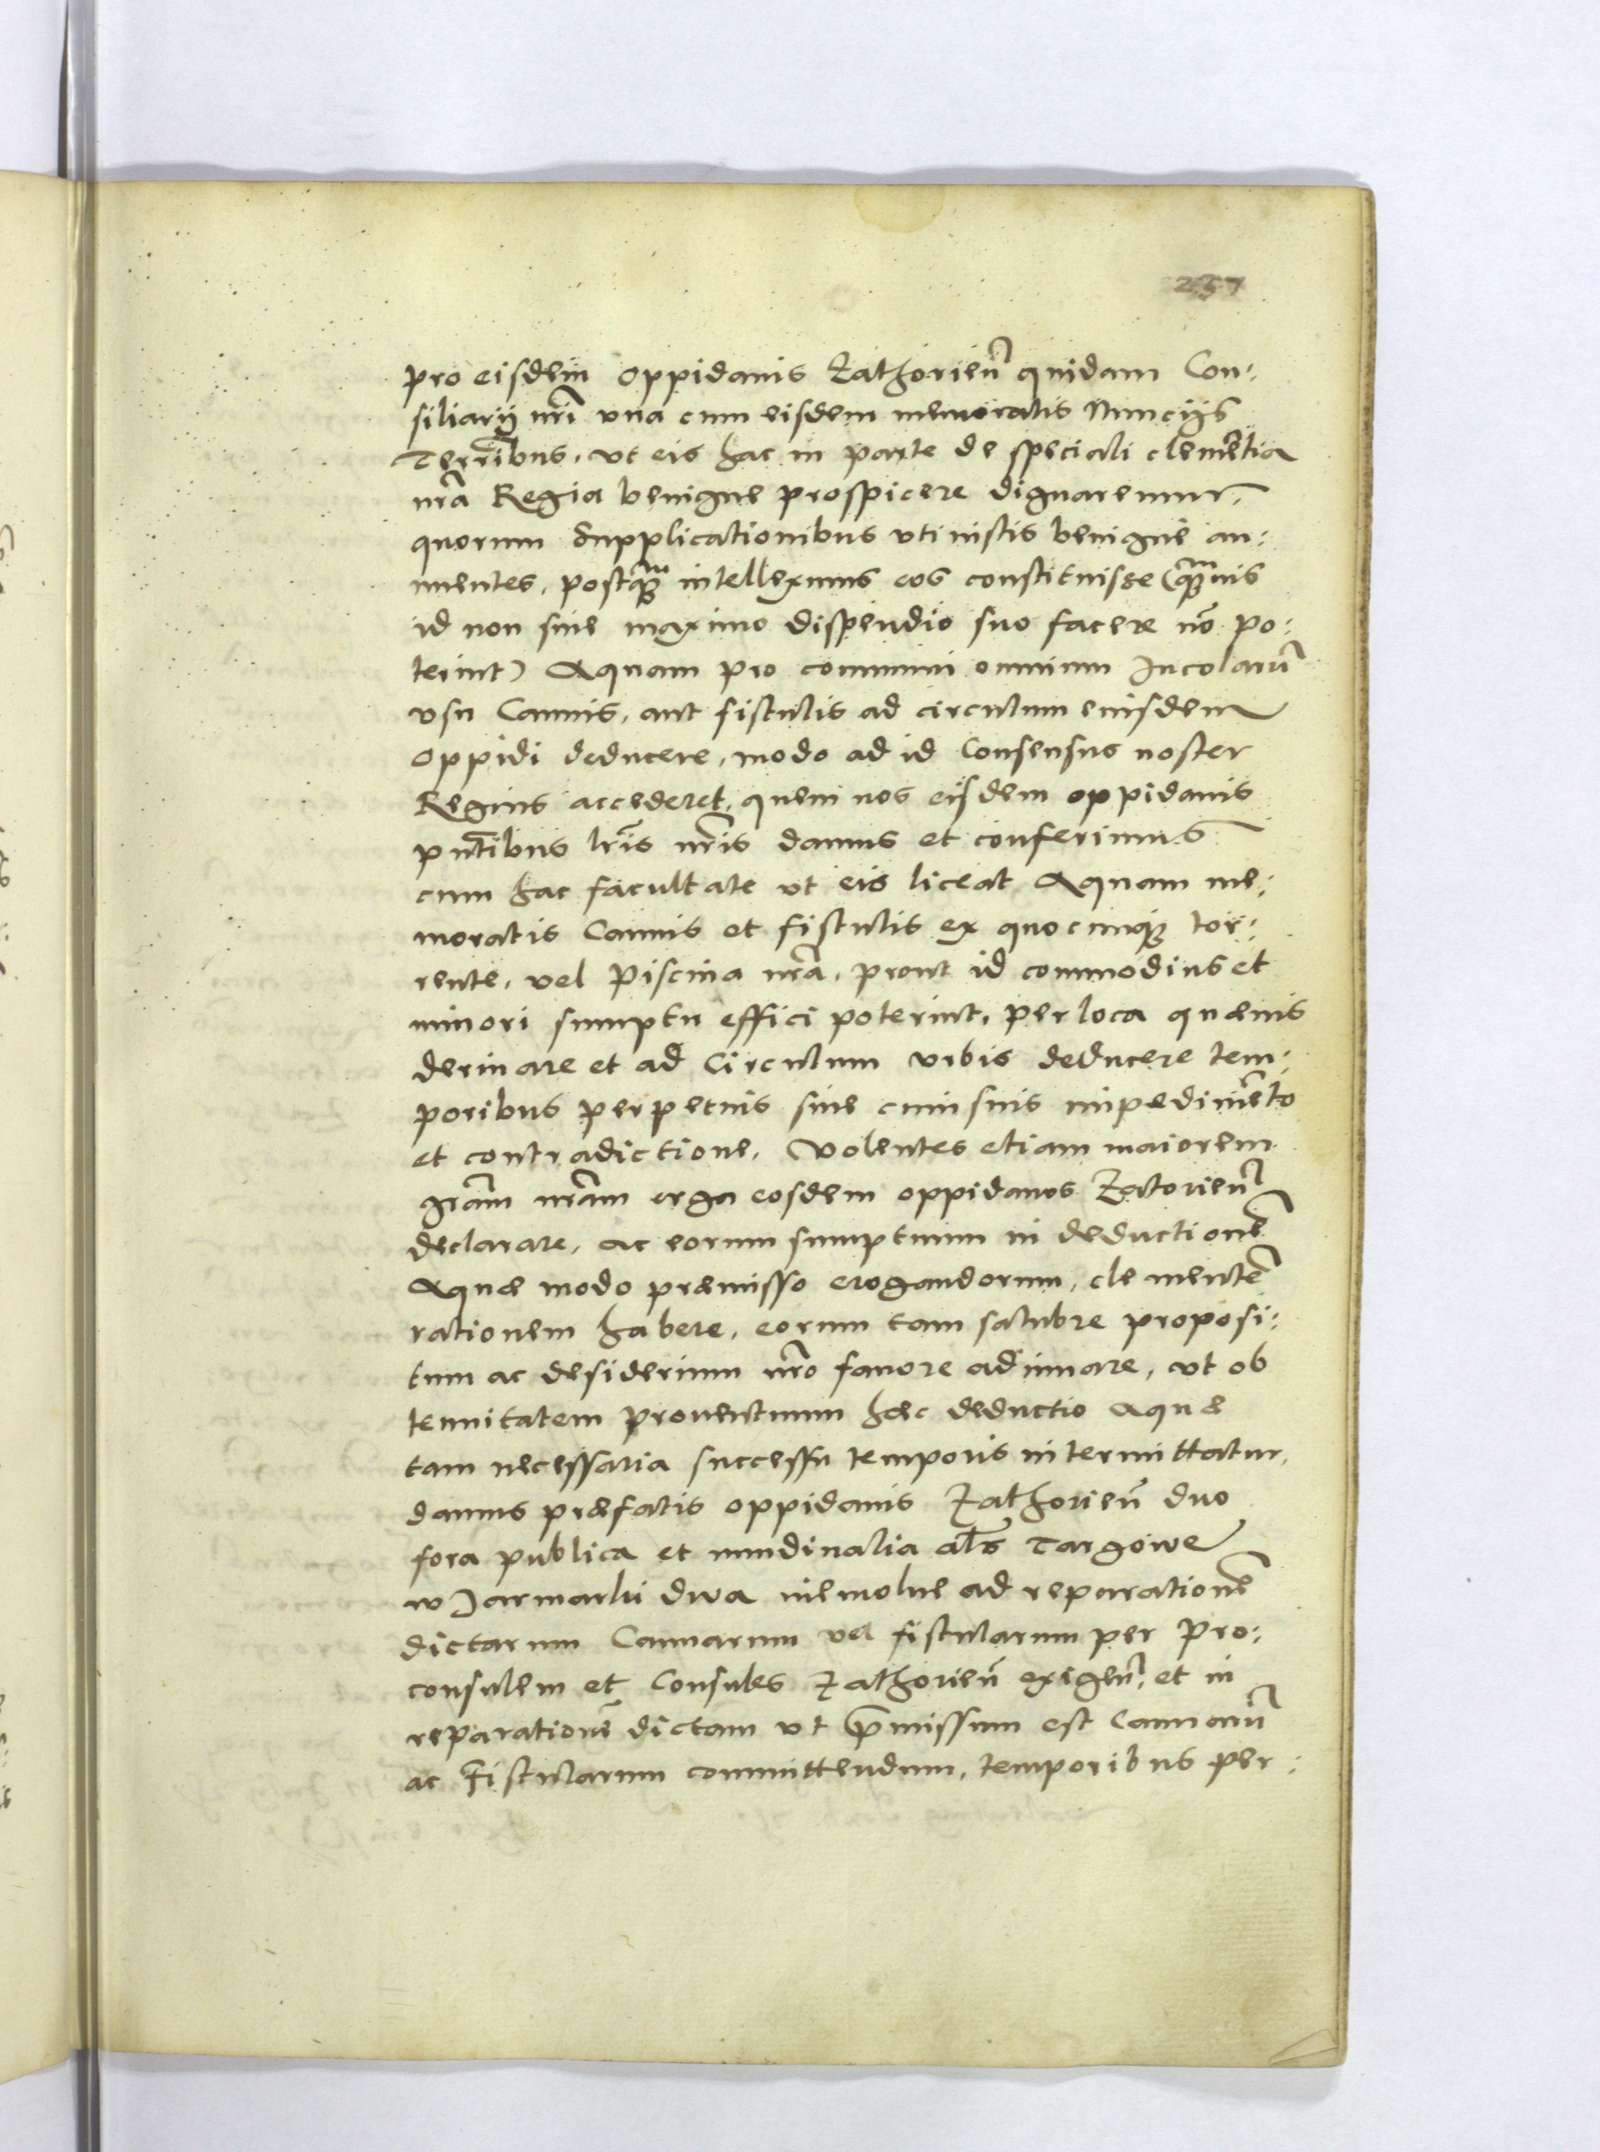 257
pro eisdem oppidanis Zathorien̄ quidam Con:
siliarij nr̄i vna cum eisdem memoratis Nuncijs
Terr̄ibus, vt eis hac in parte de speciali clemētia
nr̄a Regia benigne prospicere dignaremur,
quorum supplicationibus vti iustis benigne an:
nuentes, postq̄ꝫ intelleximus eos constituisse (q̄ꝫuis
id non sine maximo dispendio suo facere nō po:
terint) Aquam pro communi omnium Incolarū
vsu Cannis, aut fistulis ad circulum eiusdem
Oppidi deducere, modo ad id Consensus noster
Regius accederet, quem nos eisdem oppidanis
pn̄tibus lr̄is nr̄is damus et conferimus
cum hac facultate vt eis liceat Aquam me:
moratis Cannis et fistulis ex quocunqꝫ tor:
rente, vel Piscina nr̄a, prout id commodius et
minori sumptu effici poterint, per loca quæuis
deriuare et ad Circulum vrbis deducere tem:
poribus perpetuis sine cuiusuis impedimēto
et contradictione. Volentes etiam maiorem
gr̄am nr̄am erga eosdem oppidanos Zatorien̄
declarare, ac eorum sumptuum in deductionē
Aquæ modo præmisso erogandorum, clementē
rationem habere, eorum tam salubre proposi:
tum ac desiderium nr̄o fauore adiuuare, vt ob
tenuitatem prouentuum hæc deductio Aquæ
tam necessaria successu temporis intermittatur,
damus præfatis oppidanis Zathorien̄ duo
fora publica et nundinalia al̄s Targowe
w Jarmarki dwa niemolne ad reparationē
dictarum Cannarum vel fistularum per Pro:
consulem et Consules Zathorien̄ exigen̄, et in
reparationē dictam vt p̄missum est Cannarū
ac Fistularum committendum, temporibus per: